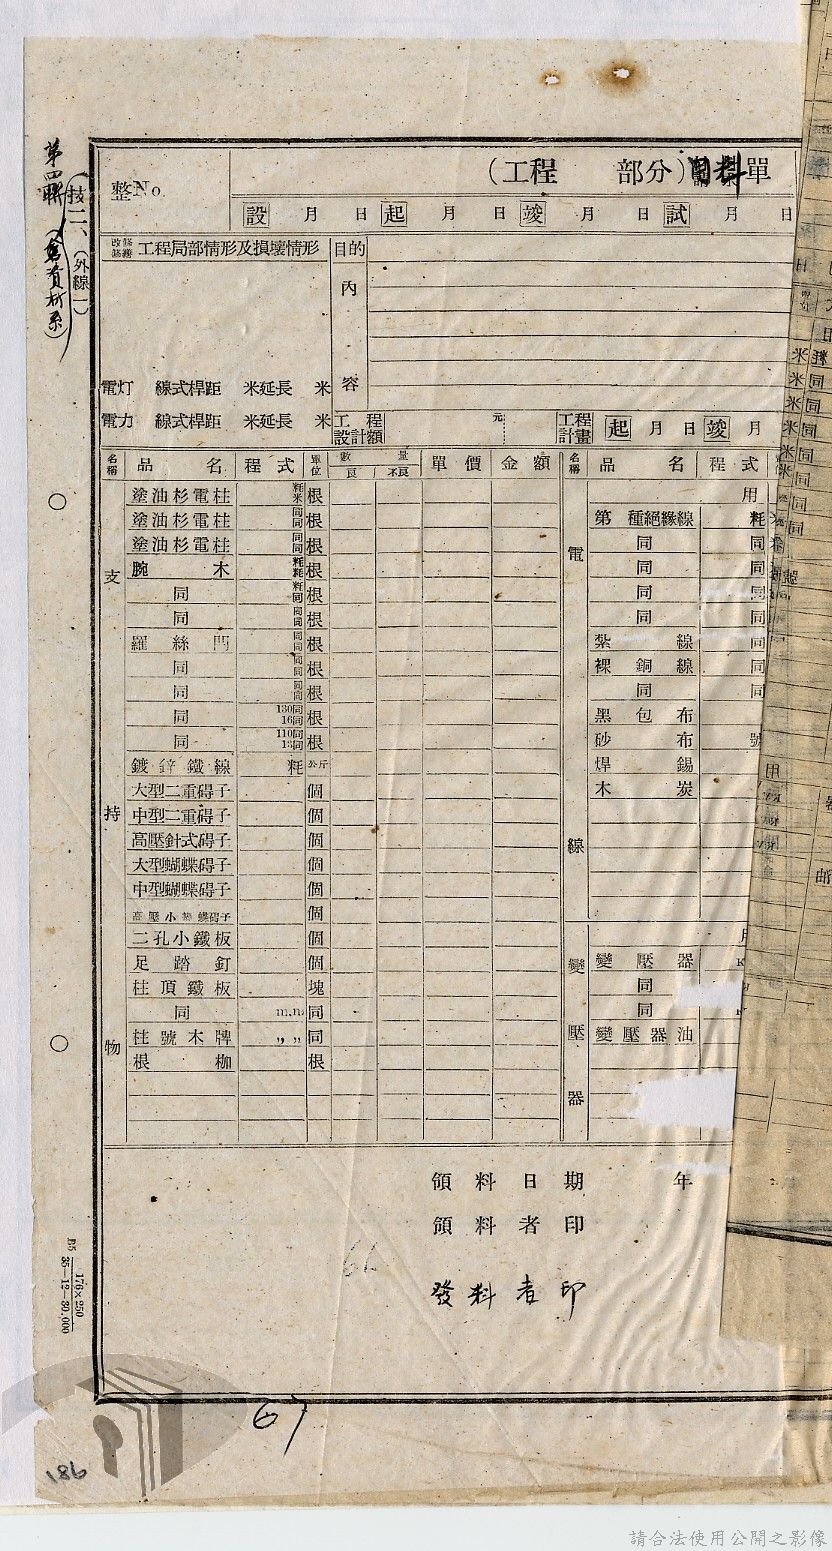 第四聯
(技二、(外線一)
(工程 部分) 料單
整No.
設 月 日 起 月 日 竣 月 日 試 月 日
工程局部情形及損壞情形
目的
內
容
電灯 線式桿距 米延長 米
電力 線式桿距 米延長 米
工程設計額 元
工程計畫 起 月 日 竣 月
名稱 品名 程式 單位 數量 良 不良 單價 金額 名稱 品名 程式
支持物
塗油杉電柱 粍米 根
塗油杉電柱 同同 根
塗油杉電柱 同同 根
腕木 粍粍 根
同 粍同 根
同 同同 根
羅絲閂 同同 根
同 同同 根
同 同同 根
同 130同 16同 根
同 110同 13同 根
鍍鋅鐵線 粍 公斤
大型二重碍子 個
中型二重碍子 個
高壓針式碍子 個
大型蝴蝶碍子 個
中型蝴蝶碍子 個
高壓小蝴蝶碍子 個
二孔小鐵板 個
足踏釘 個
柱頂鐵板 塊
同 m.m. 同
柱號木牌 〃〃 同
根枷 根
電線
用
第 種絕緣線 粍
同 同
同 同
同 同
同 同
紮線 同
裸銅線 同
同 同
黑包布
砂布 號
焊錫
木炭
變壓器
變壓器 K
同
同
變壓器油
領料日期 年
領料者印
發料者印
B5 176×250
35—12—30.000
66
67
186
請合法使用公開之影像